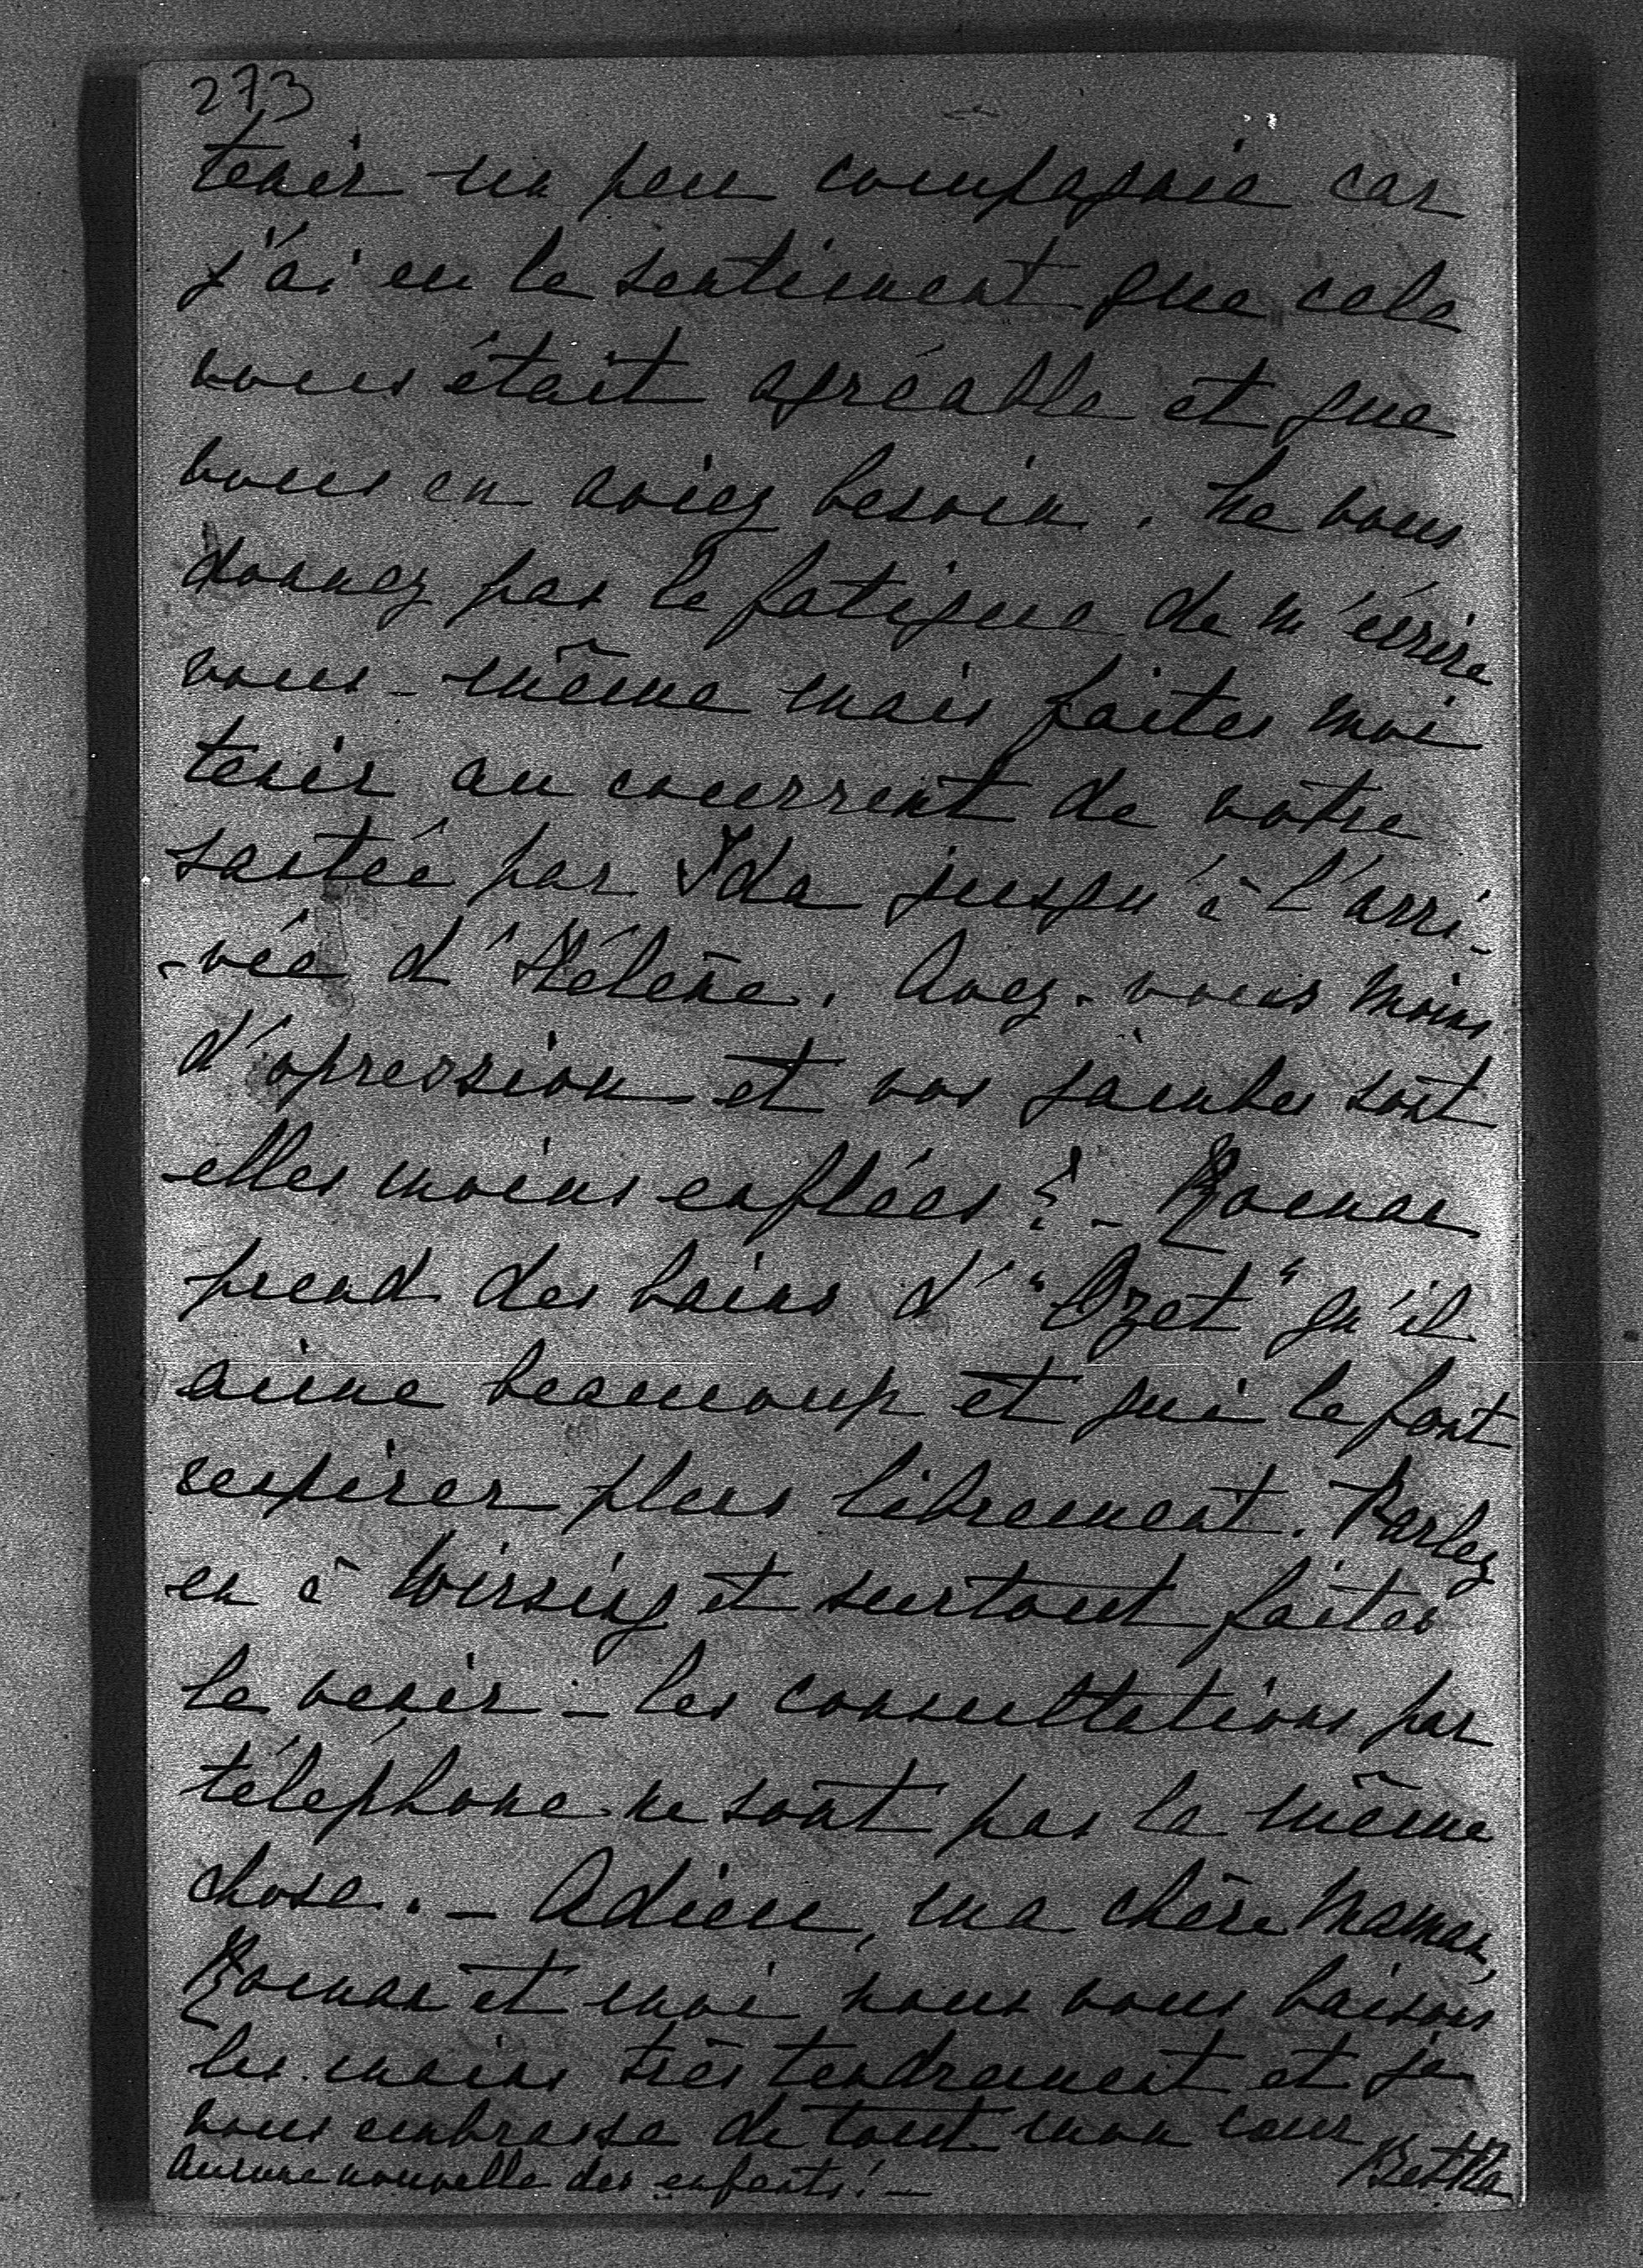 273
tenir un peu compagnie car
j'ai eu le sentiment que cela
vous était agréable et que
vous en aviez besoin. Ne vous
donnez pas la fatigue de m'écrire
vous-même mais faites moi
tenir au courrent de votre
santée par Ida jusqu'à l'arri-
-vée d'Hélène. Avez-vous moins
d'opression et vos jambes sont
elles moins enflées? -
prend des bains d'"Ozet" qu'il
aime beaucoup et qui le font
respirer plus librement. Parlez
en à Wirsing et surtout faites
le venir - les consultations par
téléphone ne sont pas la même
chose. - Adieu, ma chère Maman,
et moi nous vous baisons
les mains très tendrement et je
vous embrasse de tout mon cœur
Bertha
Aucune nouvelle des enfants! -